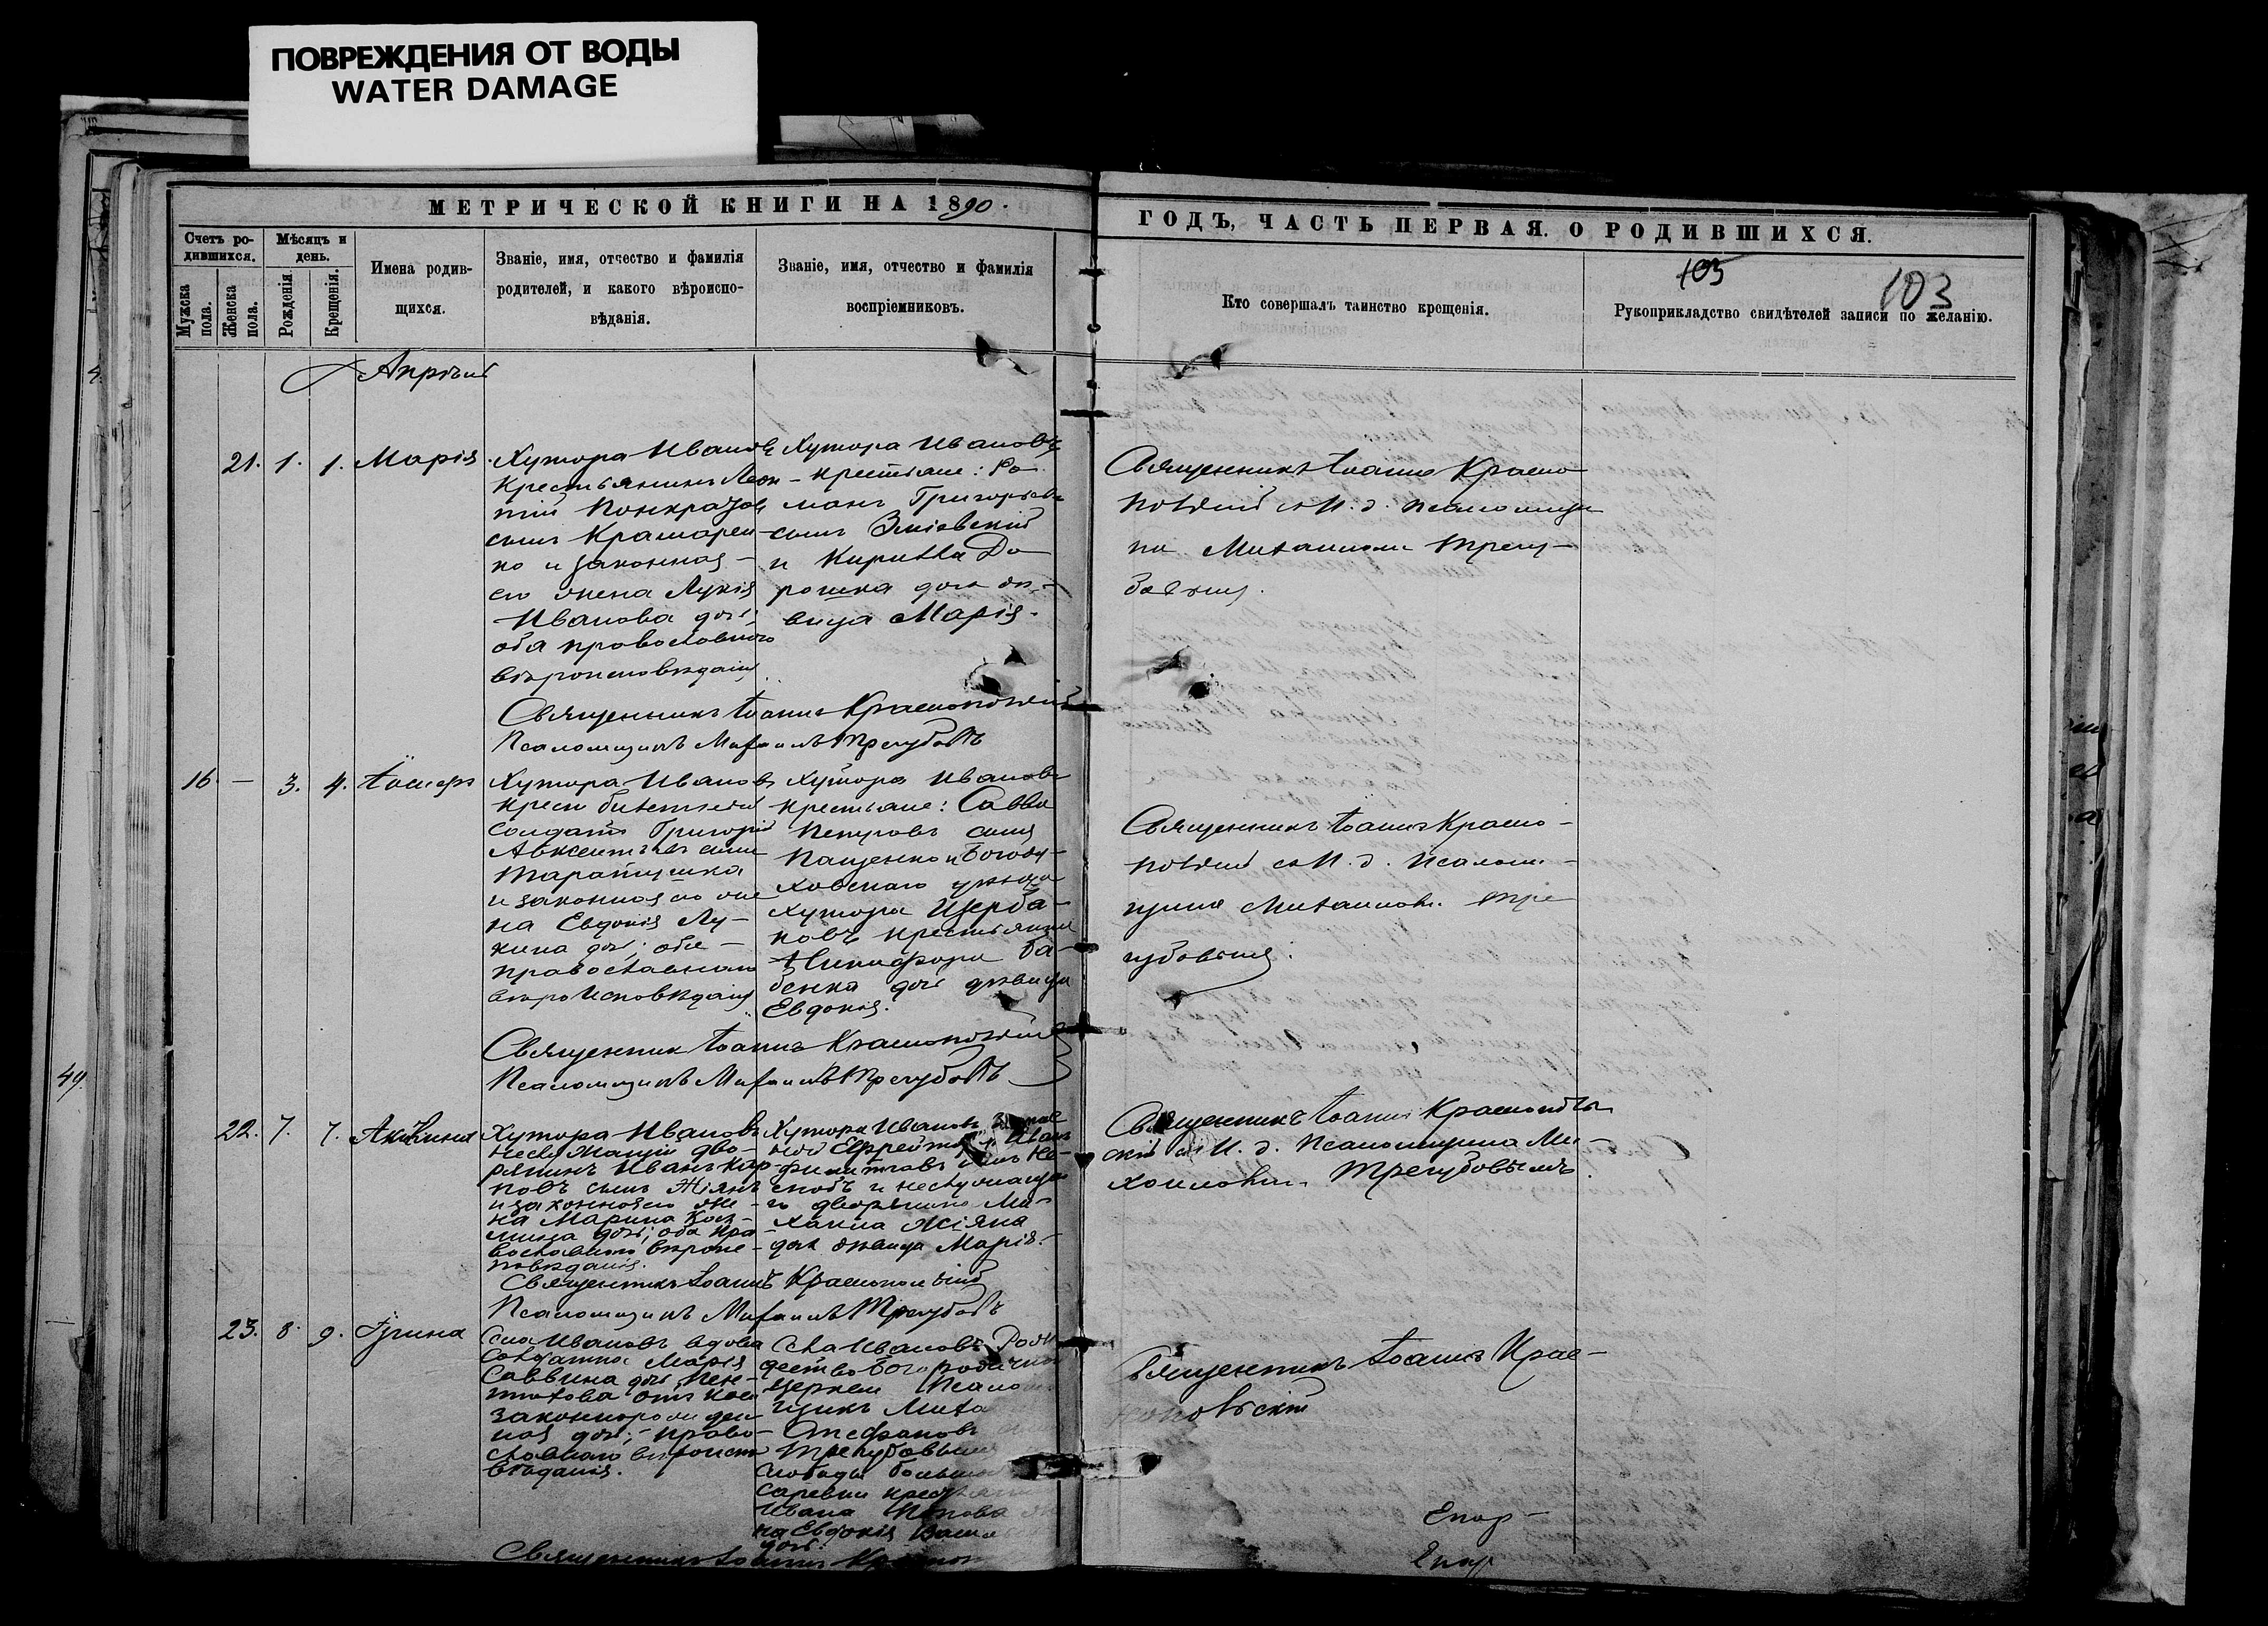 ПОВРЕЖДЕНИЯ ОТ ВОДЫ
WATER DAMAGE
МЕТРИЧЕСКОЙ КНИГИ НА 1890.
ГОДЪ, ЧАСТЬ ПЕРВАЯ. О РОДИВШИХСЯ.
Счетъ ро-
дившихся.
Мужска
пола.
Женска
пола.
Мѣсяцъ и
день.
Рожденія.
Крещенія.
Имена родив-
щихся.
Званіе, имя, отчество и фамилія
родителей, и какого вѣроиспо-
вѣданія.
Званіе, имя, отчество и фамилія
воспріемниковъ.
Кто совершалъ таинство крещенія.
Рукоприкладство свидѣтелей записи по желанію.
103
103
Апрѣль
21. 1. 1. Марія
Хутора Ивановъ
Крестьянинъ Леон-
тій Понкратовъ
сынъ Крамарен-
ко и законная
его жена Лукія
Иванова дочь,
оба православного
вѣроисповѣданія
Хутора Ивановъ
крестьяне: Ро-
манъ Григорьевъ
сынъ Зміевскій
и Кирилла До-
рошка дочь дѣ-
вица Марія.
Священникъ Іоаннъ Красно-
польскій съ И. д. псаломщи-
ка Михаиломъ Трегу-
бовымъ.
Священникъ Іоаннъ Краснопольскій
Псаломщикъ Михаилъ Трегубовъ
16. — 3. 4. Іосифъ
Хутора Ивановъ
крест. билетный
солдатъ Григорій
Авксентьевъ сынъ
и законная его же-
на Евдокія Лу-
кина дочь; оба
православнаго
вѣроисповѣданія
Хутора Ивановъ
крестьяне: Савва
Петровъ сынъ
Пащенко и Богоду-
ховскаго уѣзда
Хутора Щерба-
ковъ крестьянина
Никифора Ба-
бенка дочь дѣвица
Евдокія.
Священникъ Іоаннъ Красно-
польскій съ И. д. псалом-
щика Михаиломъ Тре-
губовымъ.
Священникъ Іоаннъ Краснопольскій
Псаломщикъ Михаилъ Трегубовъ
22. 7. 7. Акилина
Хутора Ивановъ
неслужащій дво-
рянинъ Иванъ Кар-
повъ сынъ Жіянъ
и законная его же-
на Марина Коз-
мина дочь; оба пра-
вославного вѣроис-
повѣданія.
Хутора Ивановъ
Ефрейторъ Иванъ
и неслужаща-
го дворянина Ми-
хаила Жіяна
дочь дѣвица Марія.
Священникъ Іоаннъ Краснополь-
скій съ И. д. Псаломщика Ми-
хаиломъ Трегубовымъ.
Священникъ Іоаннъ Краснопольскій
Псаломщикъ Михаилъ Трегубовъ
23. 8. 9. Ирина
Села Ивановъ вдова
солдатка Марія
Саввина дочь
законнорожден-
ная дочь; право-
славнаго вѣроис-
вѣданія.
Села Ивановъ Рож-
дество Богородичной
церкви Псалом
щикъ Миха
Стефановъ
Трегубовъ
слободы
крестьян
Ивана Попова
на Евдокія
дочь.
Священникъ Іоаннъ Крас-
нопольскій
Священникъ Іоаннъ